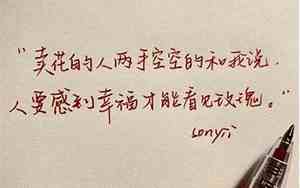 “卖花的人两手空空的和我说.
人要感到幸福才能看见玫瑰。”